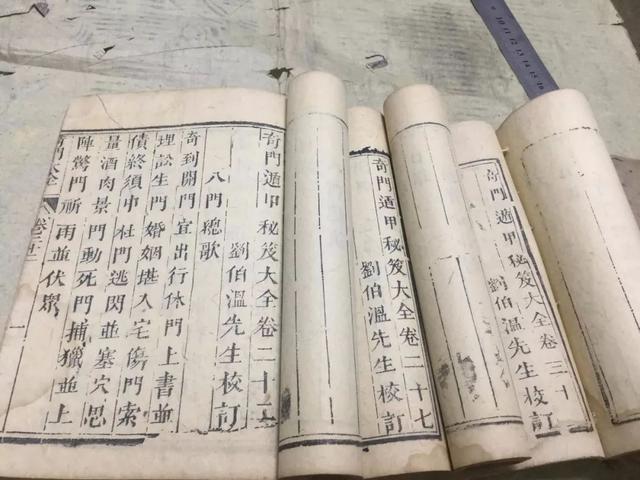 奇門遁甲秘笈大全卷二十
劉伯溫先生校訂
八門總歌
奇到開門宜出行休門上書並
理訟生門婚姻堪入宅傷門索
債終須中杜門逃閃並塞穴思
量酒肉景門動死門捕獵並上
陣驚門祈雨並伏眾
奇門大全 卷 一
奇門遁甲秘笈大全卷二十七
劉伯溫先生校訂
奇門遁甲秘笈大全卷三十
劉伯溫先生校訂
10 11 12 13 14 15